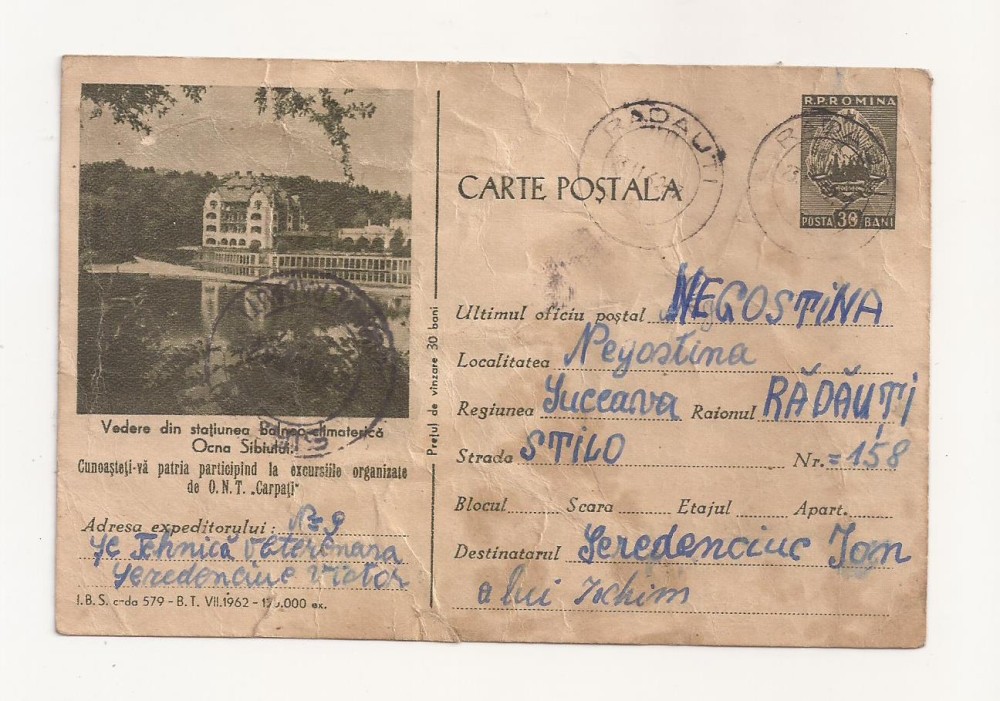 Vedere din stațiunea Balneo-climaterică
Ocna Sibiului.
Cunoașteți-vă patria participînd la excursiile organizate
de O.N.T. „Carpați"
Adresa expeditorului: N=9
Șc Tehnică Veterenara
Seredenciuc Victor
I.B.S. c-da 579 - B.T. VII.1962 - .000 ex.
Prețul de vînzare 30 bani
RADAUTI
R.P.ROMINA
POSTA 30 BANI
CARTE POȘTALA
Ultimul oficiu poștal NEGOSTINA
Localitatea Negostina
Regiunea Suceava Raionul RĂDĂUȚI
Strada STILO Nr. =158
Blocul Scara Etajul Apart.
Destinatarul Seredenciuc Ion
a lui Ichim